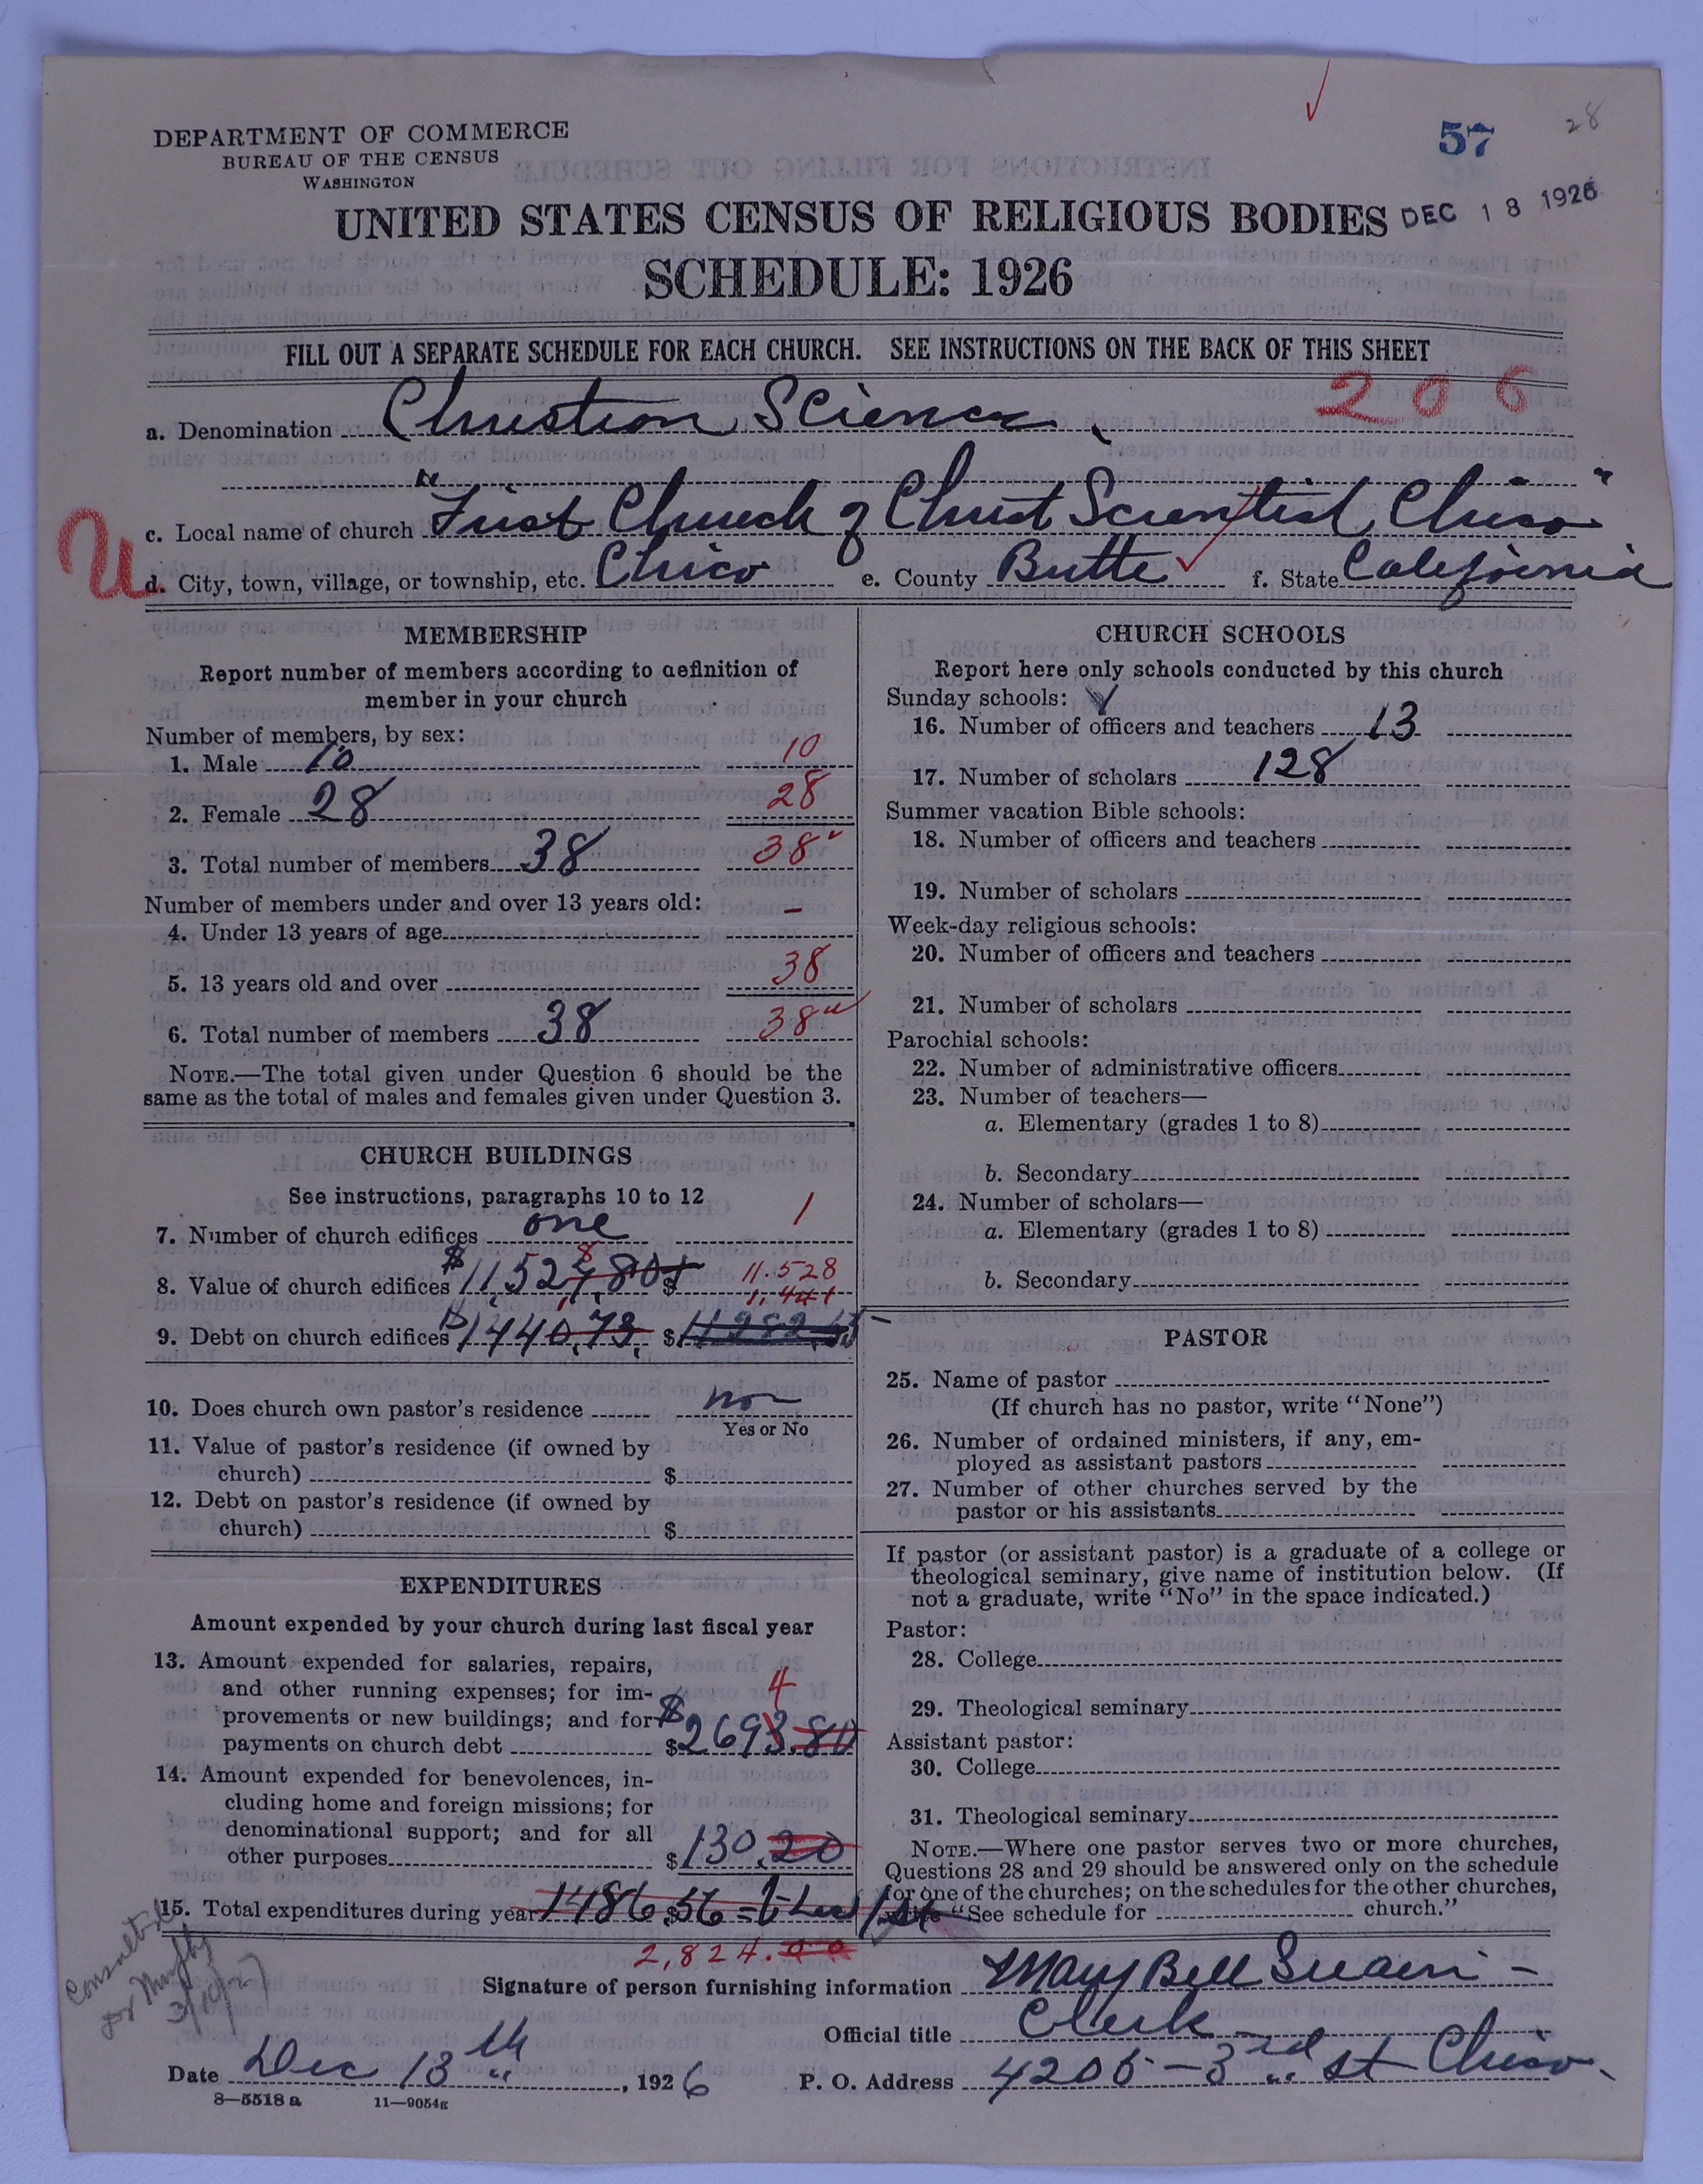 28
57
DEPARTMENT OF COMMERCE
BUREAU OF THE CENSUS
WASHINGTON
UNITED STATES CENSUS OF RELIGIOUS BODIES DEC 18 1926
SCHEDULE: 1926
FILL OUT A SEPARATE SCHEDULE FOR EACH CHURCH. SEE INSTRUCTIONS ON THE BACK OF THIS SHEET
206
a. Denomination Christian Science
c. Local name of church "First Church of Christ Scientist, Chico"
U
d. City, town, village, or township, etc. Chico e. County Butte f. State California
MEMBERSHIP
Report number of members according to definition of
member in your church
Number of members, by sex:
1. Male 10 10
2. Female 28 28
3. Total number of members 38 38
Number of members under and over 13 years old:
4. Under 13 years of age -
5. 13 years old and over 38
6. Total number of members 38 38
NOTE.—The total given under Question 6 should be the
same as the total of males and females given under Question 3.
CHURCH BUILDINGS
See instructions, paragraphs 10 to 12
7. Number of church edifices one 1
8. Value of church edifices $ 11,527.80 $ 11.528
8
1,441
9. Debt on church edifices $ 1440.73 $
10. Does church own pastor's residence no
Yes or No
11. Value of pastor's residence (if owned by
church) $
12. Debt on pastor's residence (if owned by
church) $
EXPENDITURES
Amount expended by your church during last fiscal year
13. Amount expended for salaries, repairs,
and other running expenses; for im-
provements or new buildings; and for
payments on church debt $ 2693.80
4
14. Amount expended for benevolences, in-
cluding home and foreign missions; for
denominational support; and for all
other purposes $ 130.20
15. Total expenditures during year 1486 $ 56
2,824.00
CHURCH SCHOOLS
Report here only schools conducted by this church
Sunday schools:
16. Number of officers and teachers 13
17. Number of scholars 128
Summer vacation Bible schools:
18. Number of officers and teachers
19. Number of scholars
Week-day religious schools:
20. Number of officers and teachers
21. Number of scholars
Parochial schools:
22. Number of administrative officers
23. Number of teachers—
a. Elementary (grades 1 to 8)
b. Secondary
24. Number of scholars—
a. Elementary (grades 1 to 8)
b. Secondary
PASTOR
25. Name of pastor
(If church has no pastor, write "None")
26. Number of ordained ministers, if any, em-
ployed as assistant pastors
27. Number of other churches served by the
pastor or his assistants
If pastor (or assistant pastor) is a graduate of a college or
theological seminary, give name of institution below. (If
not a graduate, write "No" in the space indicated.)
Pastor:
28. College
29. Theological seminary
Assistant pastor:
30. College
31. Theological seminary
NOTE.—Where one pastor serves two or more churches,
Questions 28 and 29 should be answered only on the schedule
for one of the churches; on the schedules for the other churches,
"See schedule for church."
Signature of person furnishing information Mary Bell Swain
Official title Clerk
Date Dec 13th, 1926 P. O. Address 4205 - 3rd St Chico
8—5518 a 11—9054g
Consulted
Dr Murphy
3/10/27